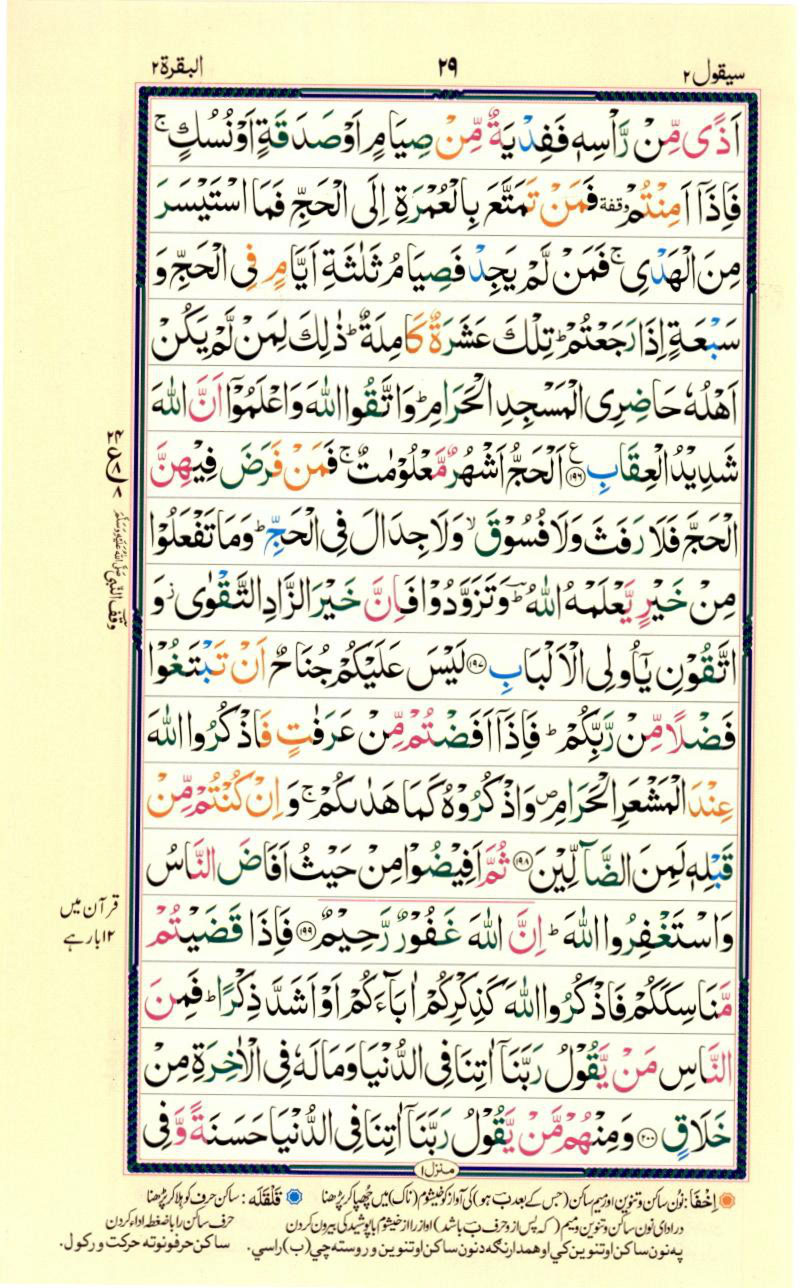 سيقول ٢
٢٩
البقرة ٢
اَذًى مِّنْ رَّاْسِهٖ فَفِدْيَةٌ مِّنْ صِيَامٍ اَوْ صَدَقَةٍ اَوْ نُسُكٍ ۚ
فَاِذَاۤ اَمِنْتُمْ وقفة فَمَنْ تَمَتَّعَ بِالْعُمْرَةِ اِلَى الْحَجِّ فَمَا اسْتَيْسَرَ
مِنَ الْهَدْيِ ۚ فَمَنْ لَّمْ يَجِدْ فَصِيَامُ ثَلٰثَةِ اَيَّامٍ فِى الْحَجِّ وَ
سَبْعَةٍ اِذَا رَجَعْتُمْ ؕ تِلْكَ عَشَرَةٌ كَامِلَةٌ ؕ ذٰلِكَ لِمَنْ لَّمْ يَكُنْ
اَهْلُهٗ حَاضِرِى الْمَسْجِدِ الْحَرَامِ ؕ وَاتَّقُوا اللّٰهَ وَاعْلَمُوْۤا اَنَّ اللّٰهَ
شَدِيْدُ الْعِقَابِ ﴿۱۹۶﴾ ع اَلْحَجُّ اَشْهُرٌ مَّعْلُوْمٰتٌ ۚ فَمَنْ فَرَضَ فِيْهِنَّ
الْحَجَّ فَلَا رَفَثَ وَلَا فُسُوْقَ ۙ وَلَا جِدَالَ فِى الْحَجِّ ؕ وَمَا تَفْعَلُوْا
مِنْ خَيْرٍ يَّعْلَمْهُ اللّٰهُ ؕ وَتَزَوَّدُوْا فَاِنَّ خَيْرَ الزَّادِ التَّقْوٰى ؗ وَ
اتَّقُوْنِ يٰۤاُولِى الْاَلْبَابِ ﴿۱۹۷﴾ لَيْسَ عَلَيْكُمْ جُنَاحٌ اَنْ تَبْتَغُوْا
فَضْلًا مِّنْ رَّبِّكُمْ ؕ فَاِذَاۤ اَفَضْتُمْ مِّنْ عَرَفٰتٍ فَاذْكُرُوا اللّٰهَ
عِنْدَ الْمَشْعَرِ الْحَرَامِ ۪ وَاذْكُرُوْهُ كَمَا هَدٰىكُمْ ۚ وَاِنْ كُنْتُمْ مِّنْ
قَبْلِهٖ لَمِنَ الضَّآلِّيْنَ ﴿۱۹۸﴾ ثُمَّ اَفِيْضُوْا مِنْ حَيْثُ اَفَاضَ النَّاسُ
وَاسْتَغْفِرُوا اللّٰهَ ؕ اِنَّ اللّٰهَ غَفُوْرٌ رَّحِيْمٌ ﴿۱۹۹﴾ فَاِذَا قَضَيْتُمْ
مَّنَاسِكَكُمْ فَاذْكُرُوا اللّٰهَ كَذِكْرِكُمْ اٰبَآءَكُمْ اَوْ اَشَدَّ ذِكْرًا ؕ فَمِنَ
النَّاسِ مَنْ يَّقُوْلُ رَبَّنَاۤ اٰتِنَا فِى الدُّنْيَا وَمَا لَهٗ فِى الْاٰخِرَةِ مِنْ
خَلَاقٍ ﴿۲۰۰﴾ وَمِنْهُمْ مَّنْ يَّقُوْلُ رَبَّنَاۤ اٰتِنَا فِى الدُّنْيَا حَسَنَةً وَّفِى
منزل ١
وقف النبی صلی اللہ علیہ وسلم
قرآن میں
۱۲ بار ہے
اِخْفَا: نون ساکن و تنوین اور میم ساکن (جس کے بعد بَ ہو) کی آواز کو خیشوم (ناک) میں چھپا کر پڑھنا
قَلْقَلَه: ساکن حرف کو ہلا کر پڑھنا
در ادای نون ساکن و تنوین و میم (که پس از و حرف بَ باشد) آواز را از خیشوم با پوشیدگی بیرون کردن
حرف ساکن را با ضغطه اداء کردن
په نون ساکن او تنوین کي او همدارنګه د نون ساکن او تنوین و روسته چي (ب) راسي.
ساکن حرفو نو ته حرکت ورکول.